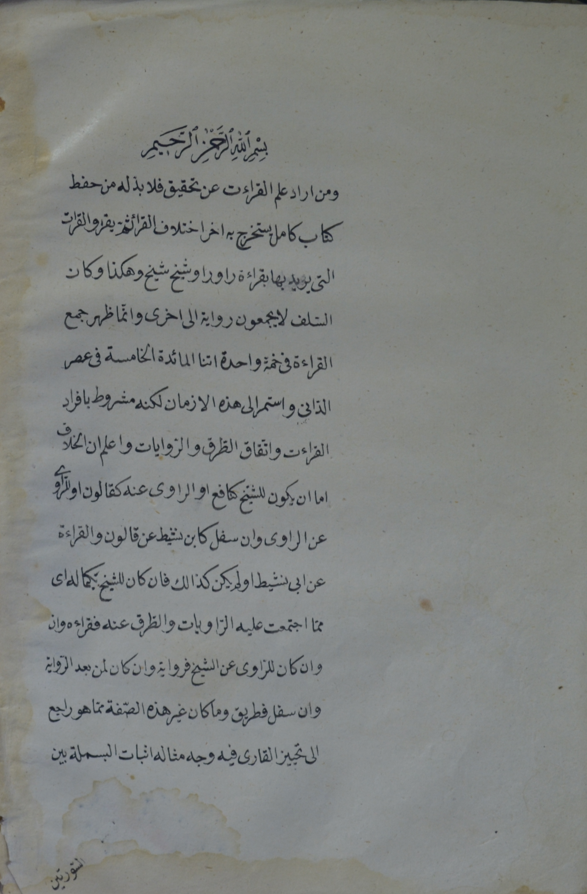 بسم الله الرحمن الرحيم
ومن اراد علم القراءت عن تحقيق فلا بذله من حفط
كتاب كامل يستخرج به اخر اختلاف القرائثم يقرو القرات
التى يريد بها بقراءة راو راو شيخ شيخ وهكذا وكان
السلف لا يجمعون رواية الى اخرى وانما ظهر جمع
القراءة فى ختمة واحدة اثنا المائدة الخامسة فى عصر
الذانى واستمر الى هذه الازمان لكنه مشروط بافراد
القراءت واتفاق الطرق والروايات واعلم ان الخلاف
اما ان يكون للشيخ كنافع او الراوى عنه كقالون او للراوى
عن الراوى وان سفل كابن نشيط عن قالون والقراءة
عن ابى نشيط اولم يكن كذالك فان كان للشيخ بكماله اى
مما اجتمعت عليه الراويات والطرق عنه فقراءه وان
وان كان للراوى عن الشيخ فرواية وان كان لمن بعد الرواية
وان سفل فطريق وما كان غير هذه الصفة مما هو راجع
الى تخيير القارى فيه وجه مثاله اثبات البسملة بين
السورتين